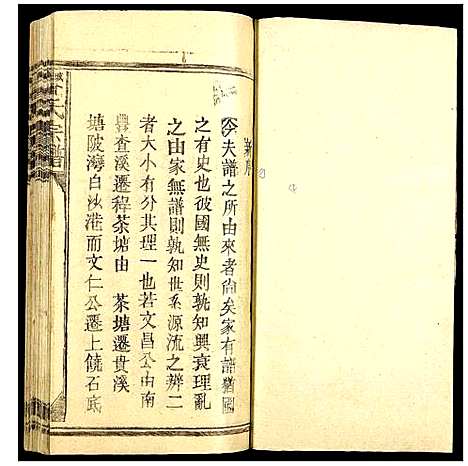 新序
今夫譜之所由來者尚矣家有譜猶國
之有史也彼國無史則孰知興衰理亂
之由家無譜則孰知世系源流之辨二
者大小有分其理一也若文昌公由南
豐查溪遷稈茶塘由　茶塘遷貴溪
塘陂灣白沙港而文仁公遷上饒石底
氏宗譜